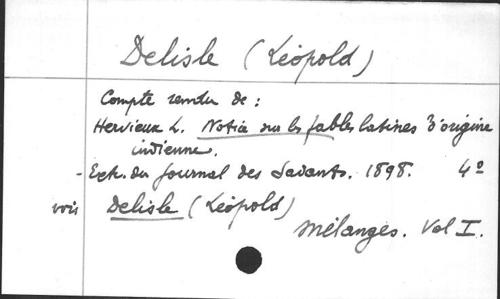 Delisle (Léopold)
Compte rendu de :
Hervieux L. Notice sur les fables latines d'origine
indienne.
- Extr. du Journal des Savants. 1898. 4º
voir Delisle (Léopold)
Mélanges. Vol I.